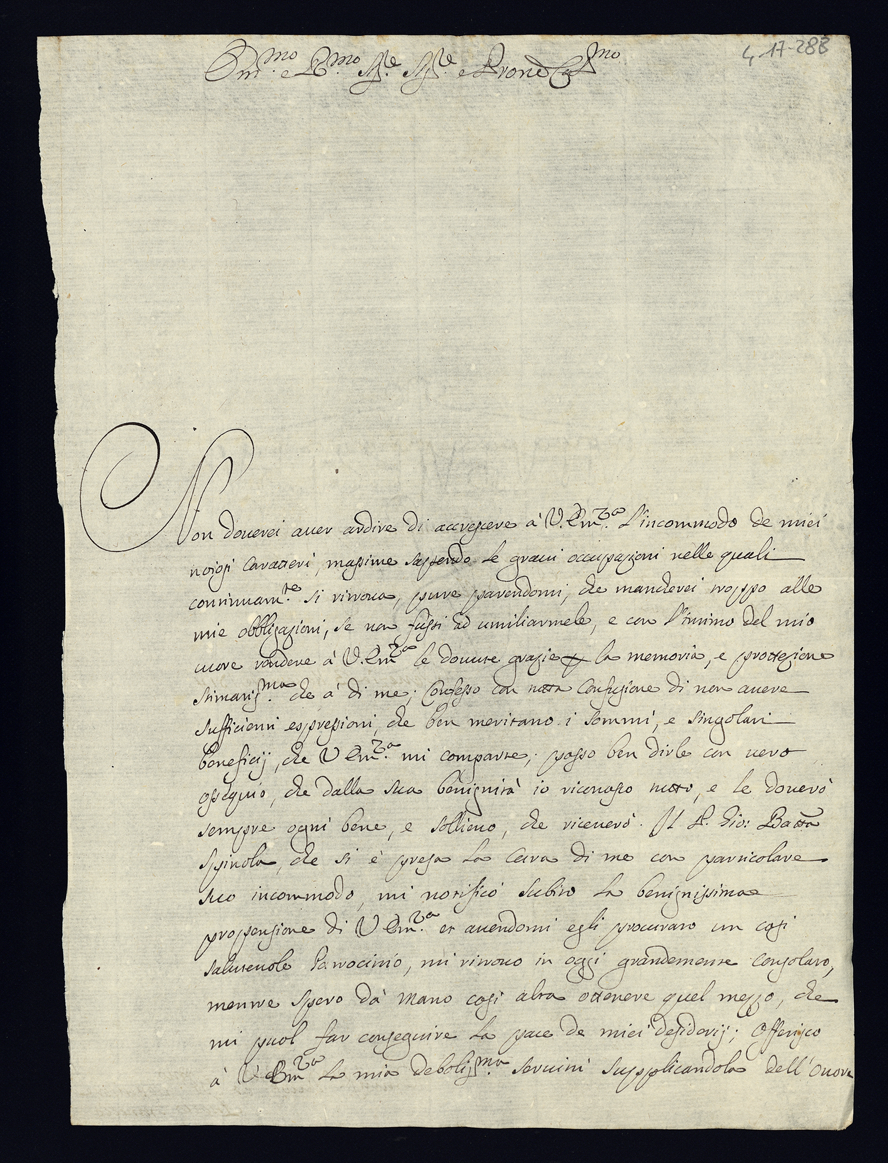 Em.mo e R.mo Sig.re Sig.re e Prone Col.mo
4 17-288
Non douerei auer ardire di accrescere à V. Em.za l'incommodo de miei
noiosi Caratteri, massime sapendo le graui occupazioni nelle quali
continuam.te si ritroua, pure parendomi, che mancherei troppo alle
mie obbligazioni, se non fussi ad umiliarmele, e con l'intimo del mio
cuore rendere à V. Em.za le douute grazie la memoria, e protezione
stimatiss.ma che à di me; Confesso con tutta Confusione di non auere
sufficienti espressioni, che ben meritano i sommi, e singolari
beneficij, che V Em.za mi comparte; posso ben dirle con uero
ossequio, che dalla sua benignità io riconosco tutto, e le douerò
sempre ogni bene, e sollieuo, che riceuerò. Il P. Gio: Batta
Spinola, che si è presa la Cura di me con particolare
suo incommodo, mi notificò subito la benignissima
propensione di V Em.za et auendomi egli procurato un cosi
saluteuole Patrocinio, mi ritrouo in oggi grandemente consolato,
mentre spero dà mano cosi alta ottenere quel mezzo, che
mi puol far conseguire la pace de miei desiderij; Offerisco
à V Em.za la mia deboliss.ma seruitù supplicandola dell'Onore